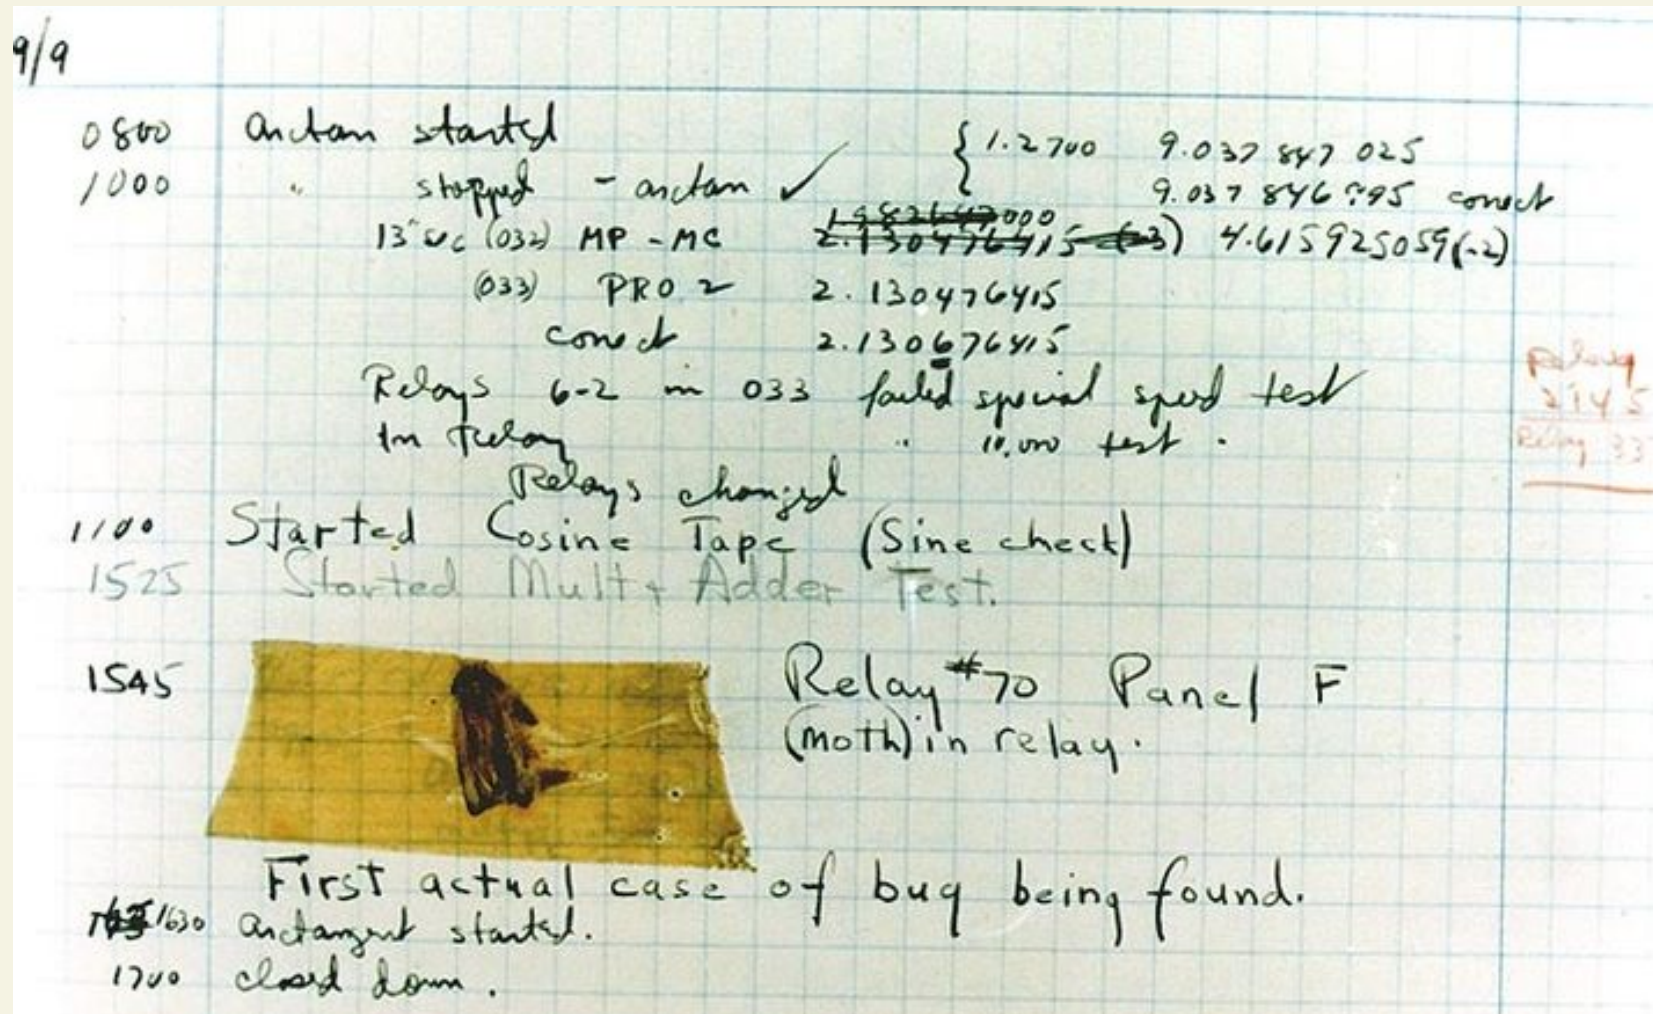 9/9
0800 Antan started { 1.2700 9.037 847 025
1000 " stopped - antan ✓ 9.037 846 995 conect
13" sec (032) MP - MC 2.130476415 (-3) 4.615925059(-2)
(033) PRO 2 2.130476415
conect 2.130676415
Relays 6-2 in 033 failed special speed test
In Relay " 10,000 test .
Relays changed
1100 Started Cosine Tape (Sine check)
1525 Started Mult + Adder Test.
1545 Relay #70 Panel F
(moth) in relay.
First actual case of bug being found.
1630 arctangent started.
1700 closed down .
Relay
2145
Relay 33